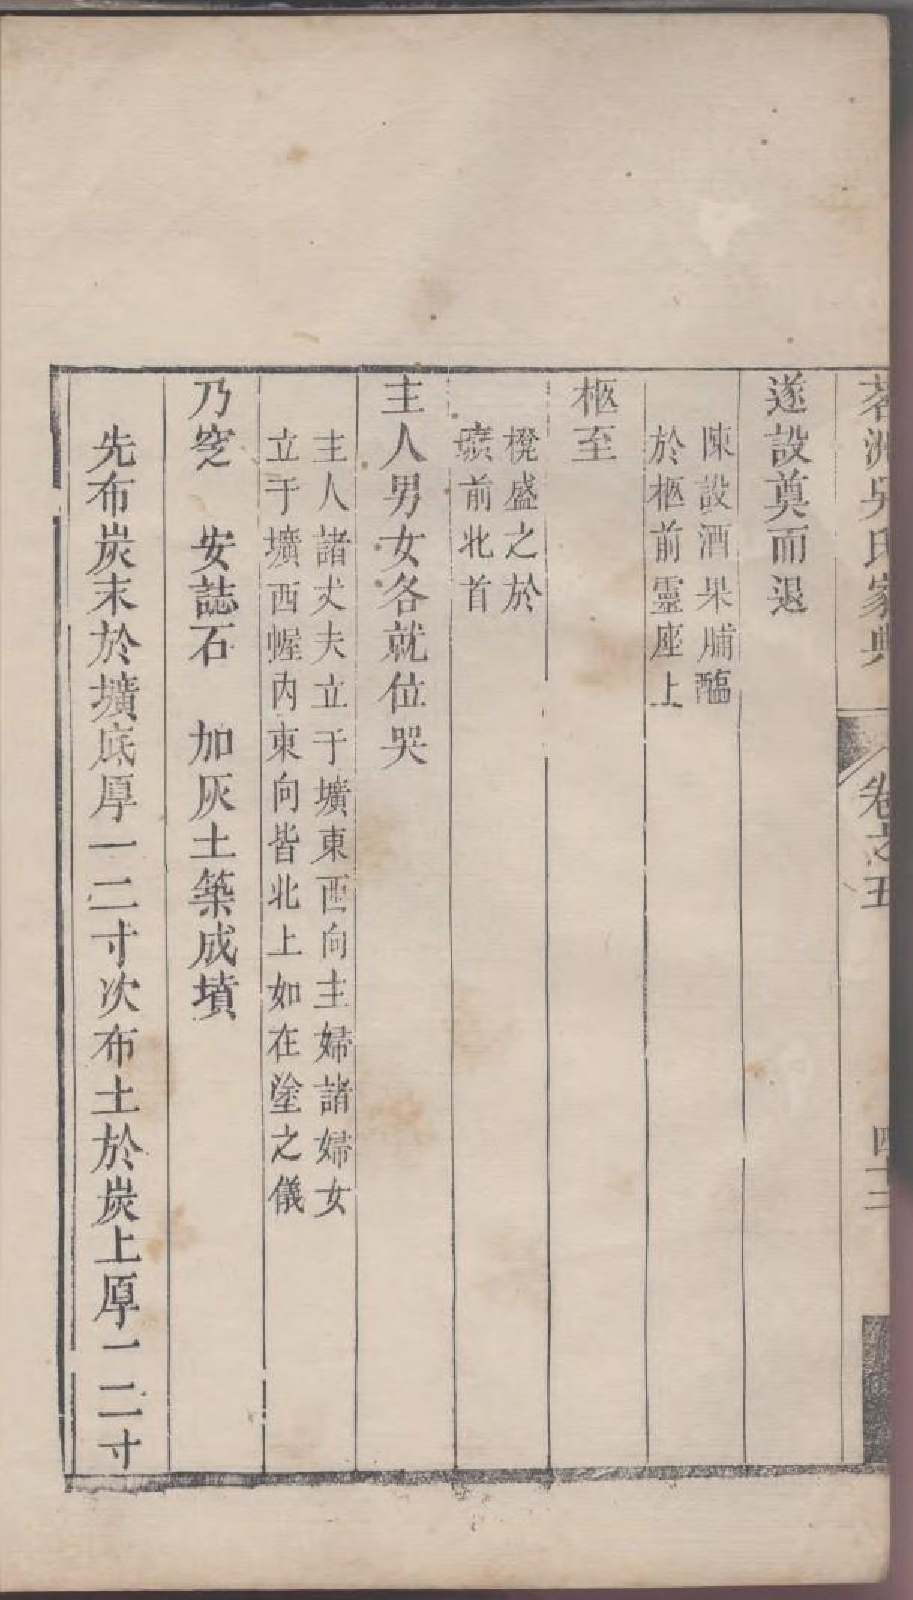 茗洲吳氏家典
卷之五
四十三
遂設奠而退
陳設酒果脯醢
於柩前靈座上
柩至
櫈盛之於
壙前北首
主人男女各就位哭
主人諸丈夫立于壙東西向主婦諸婦女
立于壙西幄内東向皆北上如在塗之儀
乃窆　安誌石　加灰土築成墳
先布炭末於壙底厚一二寸次布土於炭上厚一二寸